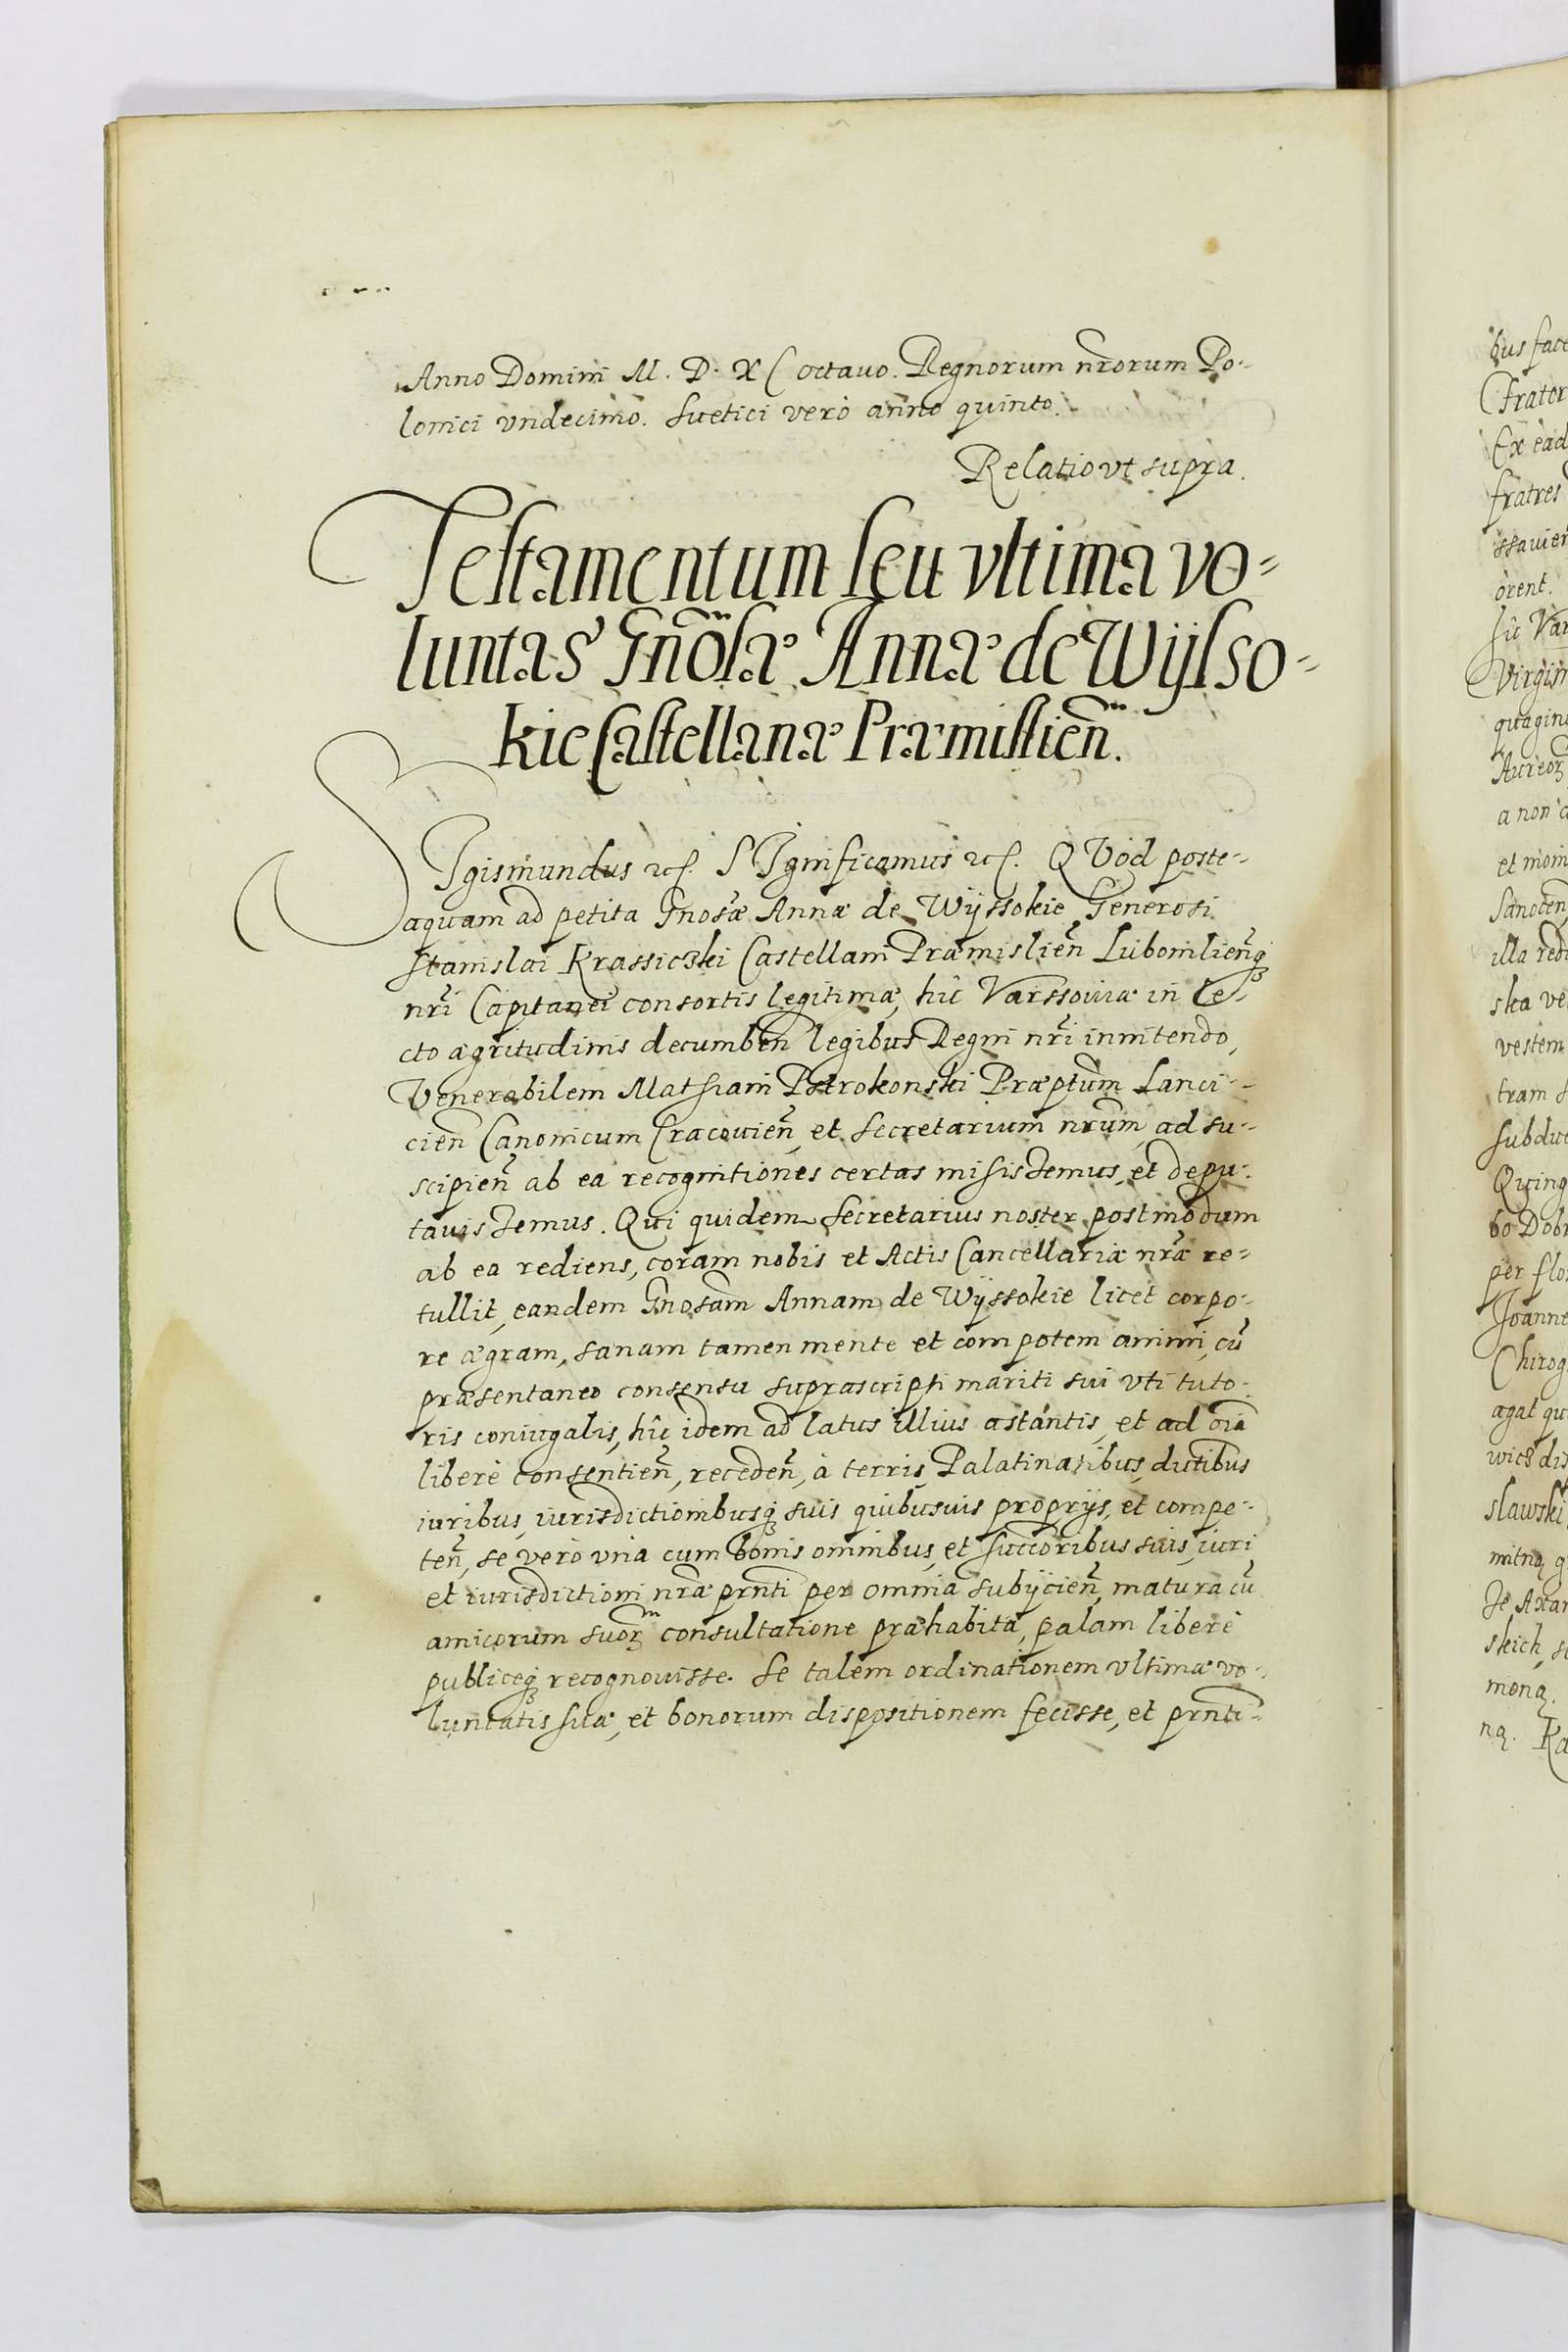 Anno Domini M. D. XC octauo. Regnorum nr̃orum Po-
lonici vndecimo. Suetici verò anno quinto.
Relatio vt supra.
Testamentum seu vltima vo-
luntas Gnõsæ Annæ de Wÿsso-
kie Castellanæ Præmislień.
SIgismundus etc. SIgnificamus etc. QVod poste-
aquam ad petita Gnosæ Annæ de Wÿssokie Generosi
Stanislai Krassiczki Castellani Præmislień Lubomlieńq3
nr̃i Capitanei consortis legitimæ, hîc Varssouiæ in le-
cto ægritudinis decumbeń legibus Regni nr̃i innitendo,
Venerabilem Mathiam Pstrokonski Præptum Lanci-
cień Canonicum Cracouień et Secretarium nrũm, ad su-
scipień ab ea recognitiones certas misissemus, et depu-
tauissemus. Qui quidem Secretarius noster postmodum
ab ea rediens, coram nobis et Actis Cancellariæ nr̃æ re-
tullit, eandem Gnosam Annam de Wÿssokie licet corpo-
re ægram, sanam tamen mente et compotem animi, cũ
præsentaneo consensu suprascripti mariti sui vti tuto-
ris coniugalis, hîc idem ad latus illius astantis, et ad oĩa
liberè consentień, recedeń, à terris, Palatinatibus, dictibus
iuribus, iurisdictionibusq3 suis quibusuis proprijs, et compe-
teń, se verò vna cum bonis omnibus, et succoribus suis, iuri
et iurisdictioni nr̃æ prñti per omnia subÿcień, matura cũ
amicorum suor̃ consultatione præhabita, palam liberè
publiceq3 recognouisse. Se talem ordinationem vltimæ vo-
luntatis suæ, et bonorum dispositionem fecisse, et prñti-
bus
Frater
Ex ead
fratres
orent.
hîc Var
a non
et
illa
ska ve
vestem
tram
Quinq
bo Dobr
per flo
Joanne
Chirog
agat qu
wicz dis
slawski
skich,